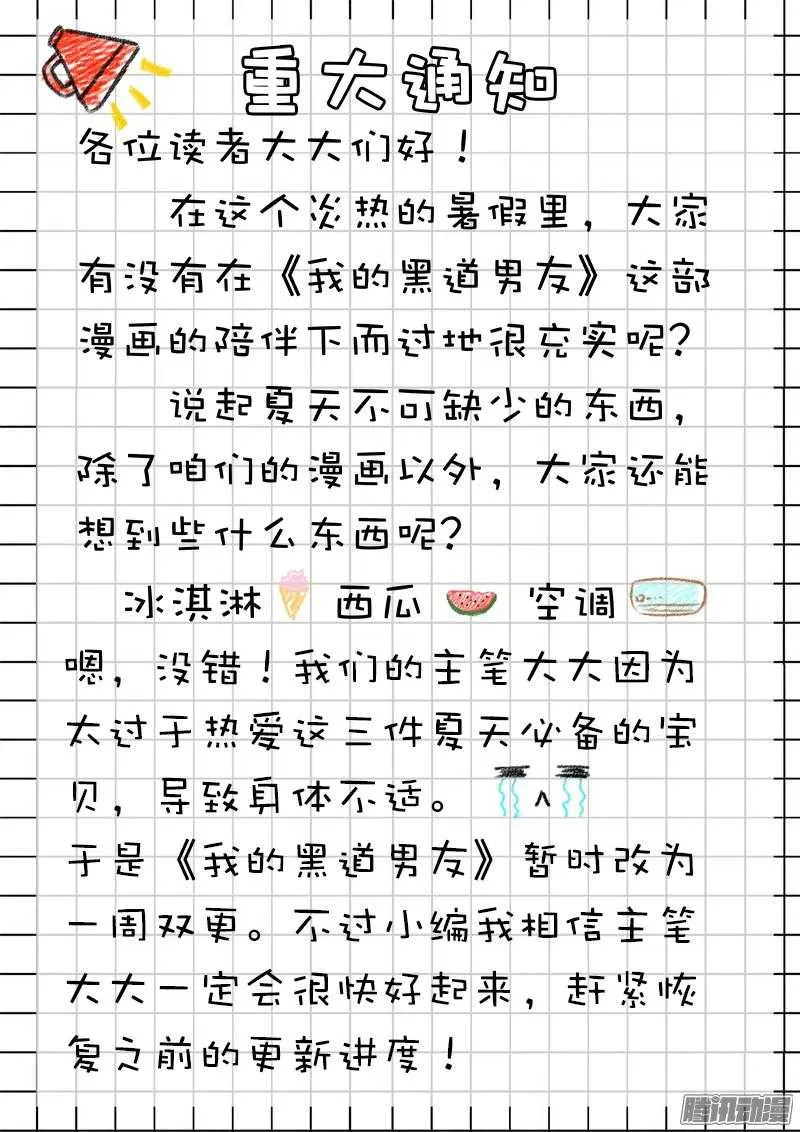 重大通知
各位读者大大们好！
在这个炎热的暑假里，大家
有没有在《我的黑道男友》这部
漫画的陪伴下而过地很充实呢？
说起夏天不可缺少的东西，
除了咱们的漫画以外，大家还能
想到些什么东西呢？
冰淇淋 西瓜 空调
嗯，没错！我们的主笔大大因为
太过于热爱这三件夏天必备的宝
贝，导致身体不适。
于是《我的黑道男友》暂时改为
一周双更。不过小编我相信主笔
大大一定会很快好起来，赶紧恢
复之前的更新进度！
腾讯动漫